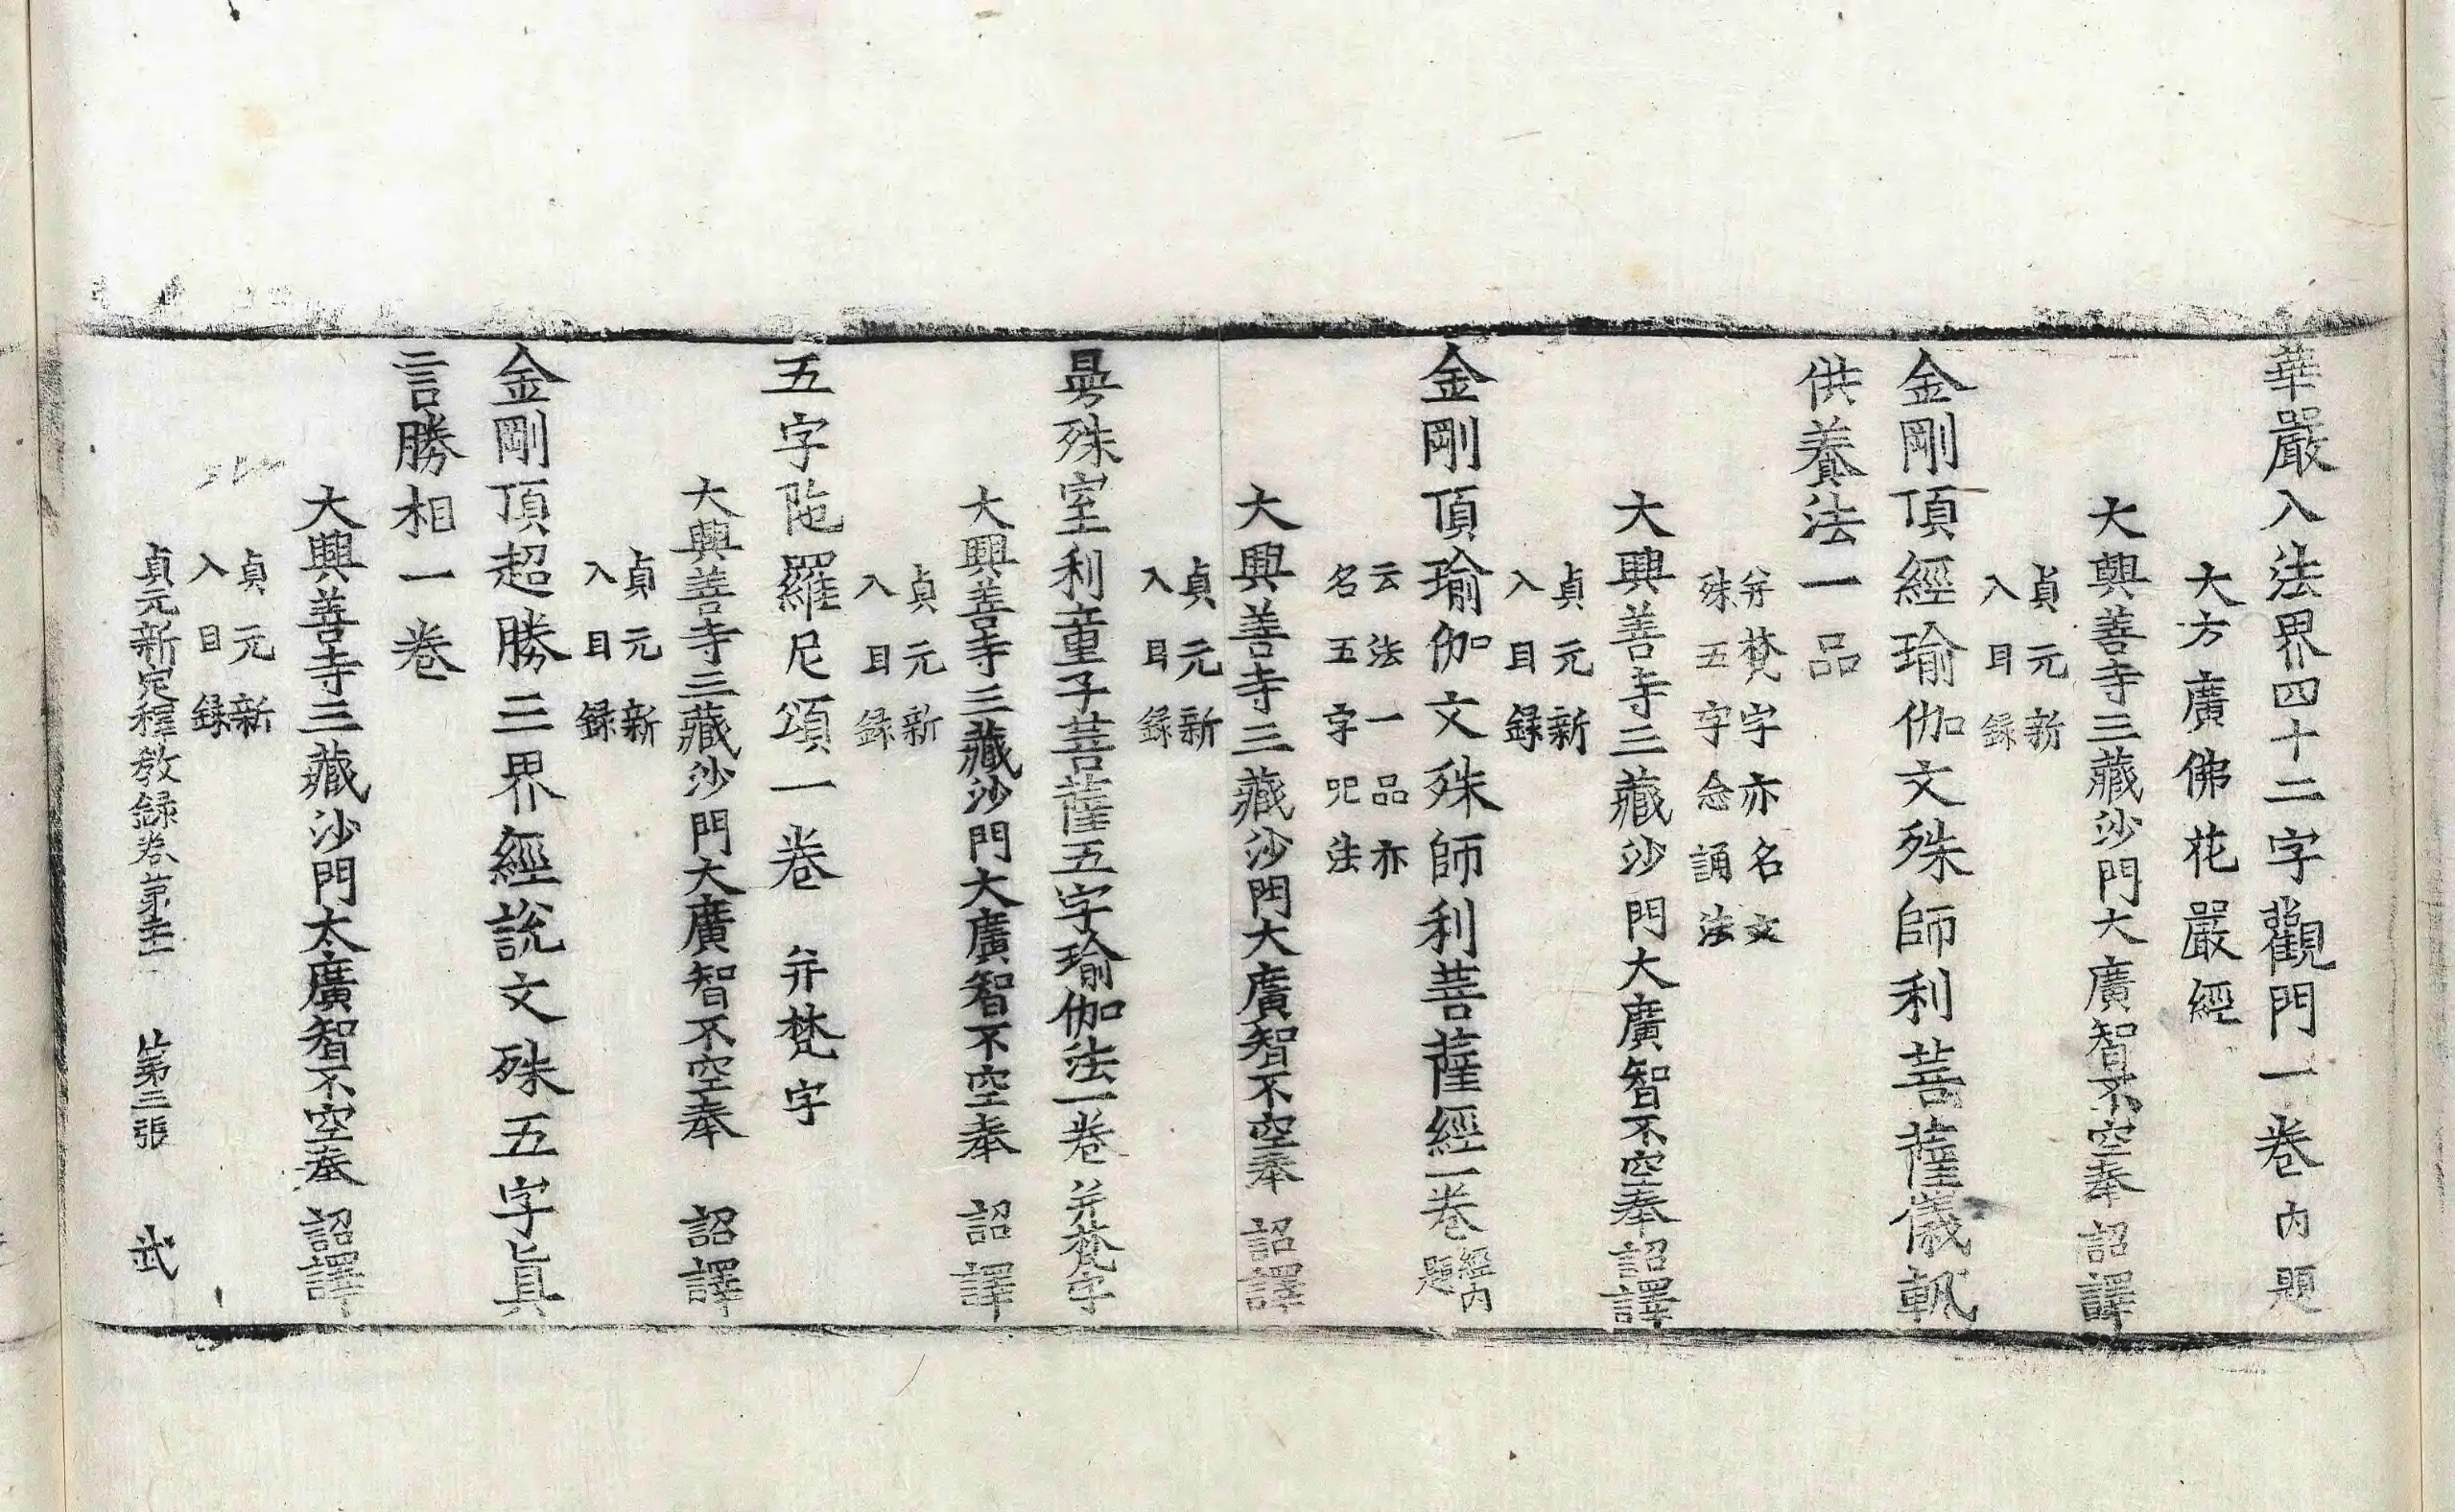 華嚴入法界四十二字觀門一卷内題
大方廣佛花嚴經
大興善寺三藏沙門大廣智不空奉詔譯
貞元新
入目錄
金剛頂經瑜伽文殊師利菩薩儀軌
供養法一品
并梵字亦名文
殊五字念誦法
大興善寺三藏沙門大廣智不空奉詔譯
貞元新
入目錄
金剛頂瑜伽文殊師利菩薩經一卷經内
題
云法一品亦
名五字呪法
大興善寺三藏沙門大廣智不空奉詔譯
貞元新
入目錄
曼殊室利童子菩薩五字瑜伽法一卷并梵字
大興善寺三藏沙門大廣智不空奉詔譯
貞元新
入目錄
五字陁羅尼頌一卷并梵字
大興善寺三藏沙門大廣智不空奉詔譯
貞元新
入目錄
金剛頂超勝三界經說文殊五字眞
言勝相一卷
大興善寺三藏沙門大廣智不空奉詔譯
貞元新
入目錄
貞元新定釋教錄卷第 第三張 武